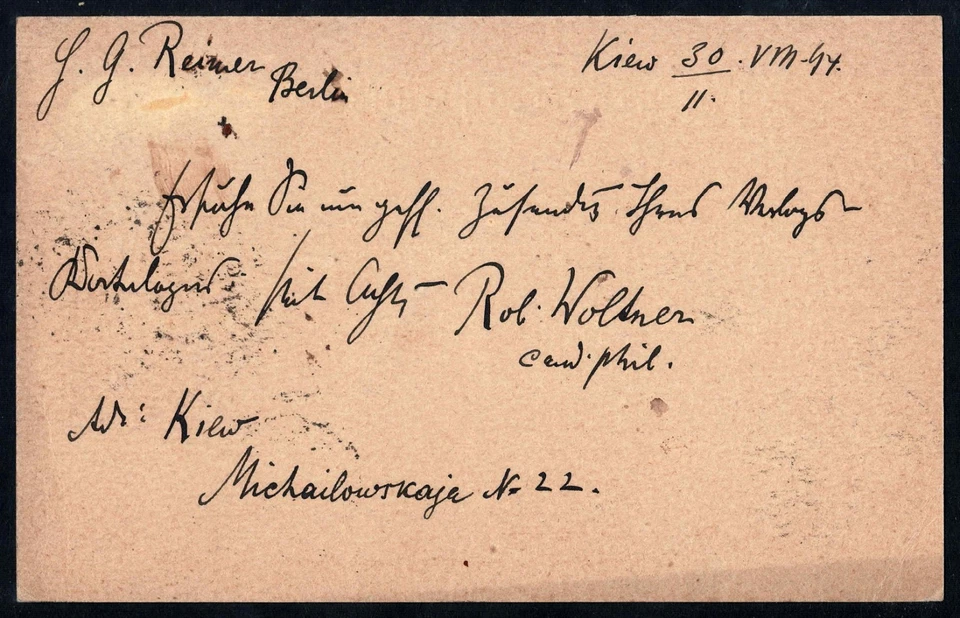 H. G. Reimer
Berlin
Kiew 30/11. VIII. 94.
Ersuche Sie um gefl. Zusendg Ihres Verlags-
Kataloges Mit Achtg
Rob. Woltner
cand. phil.
Adr: Kiew
Michailowskaja № 22.